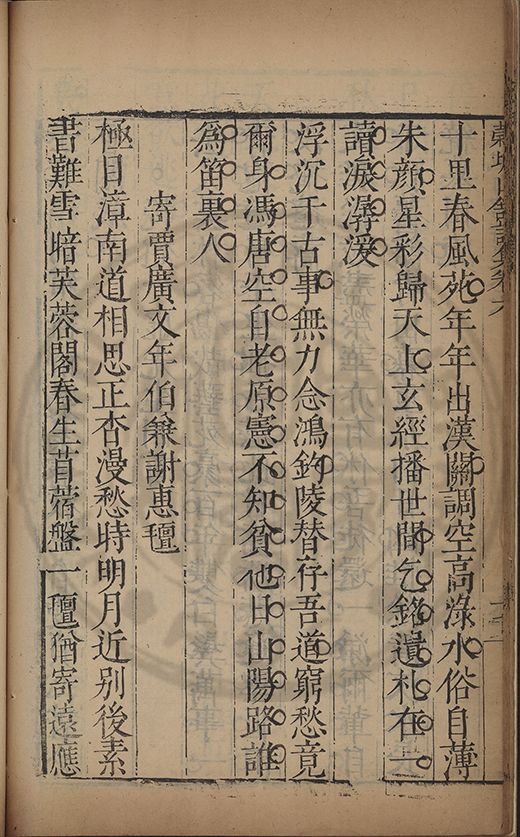 十里春風苑年年出漢關調空高淥水俗自薄
朱顏星彩歸天上玄經播世間乞銘遺札在一
讀淚潺湲
浮沉千古事無力念鴻鈞陵替仔吾道窮愁竟
爾身馮唐空自老原憲不知貧他日山陽路誰
爲笛裏人
寄賈廣文年伯兼謝惠氊
極目漳南道相思正杳漫愁時明月近別後素
書難雪暗芙蓉閣春生苜蓿盤一氊猶寄遠應